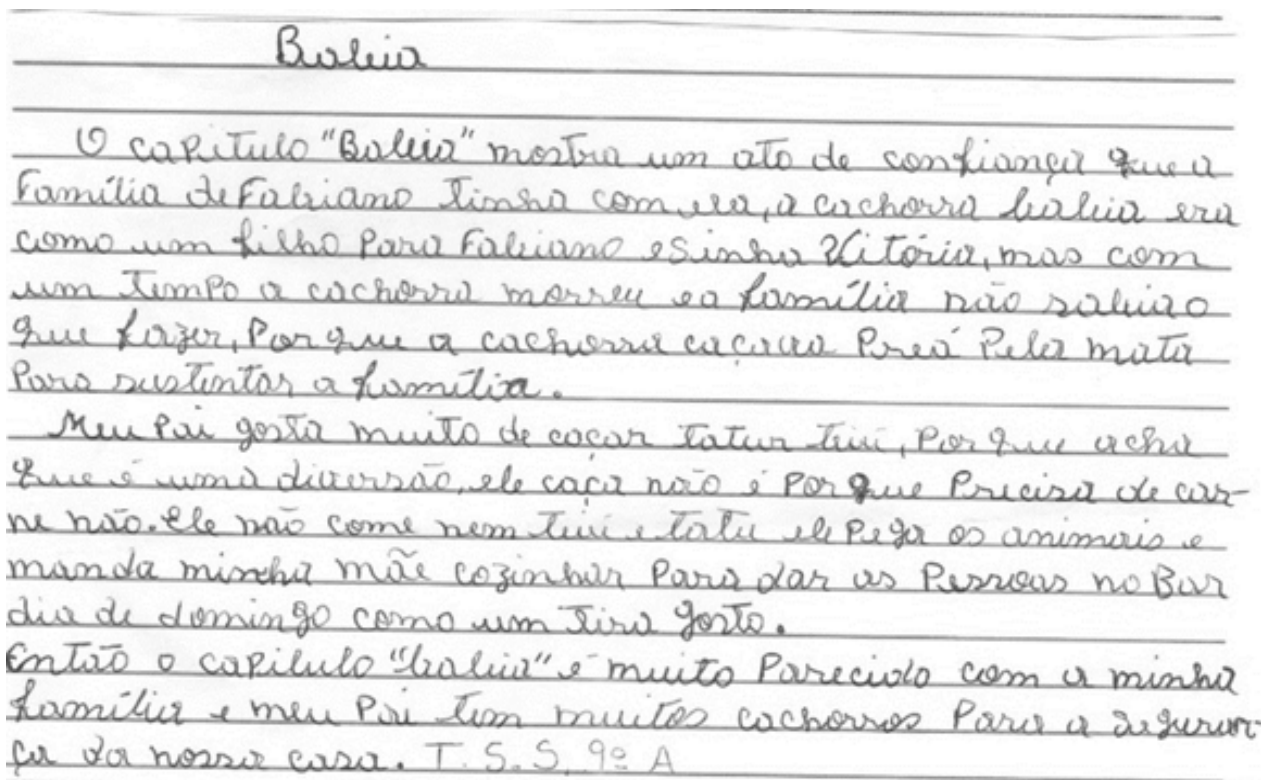 Baleia
O capitulo "Baleia" mostra um ato de confiança que a
Família de Fabiano tinha com ela, a cachorra baleia era
como um filho Para Fabiano e Sinha Vitória, mas com
um tempo a cachorra morreu e a família não sabia o
que fazer, Por que a cachorra caçava Preá Pela mata
Para sustentar a família.
Meu Pai gosta muito de caçar tatu teiú, Por que acha
que é uma diversão, ele caça não é Por que Precisa de car-
ne não. Ele não come nem teiú e tatu ele Pega os animais e
manda minha mãe cozinhar Para dar as Pessoas no Bar
dia de domingo como um tira gosto.
Então o capitulo "baleia" é muito Parecido com a minha
família e meu Pai tem muitos cachorros Para a seguran-
ça da nossa casa. T. S. S. 9º A